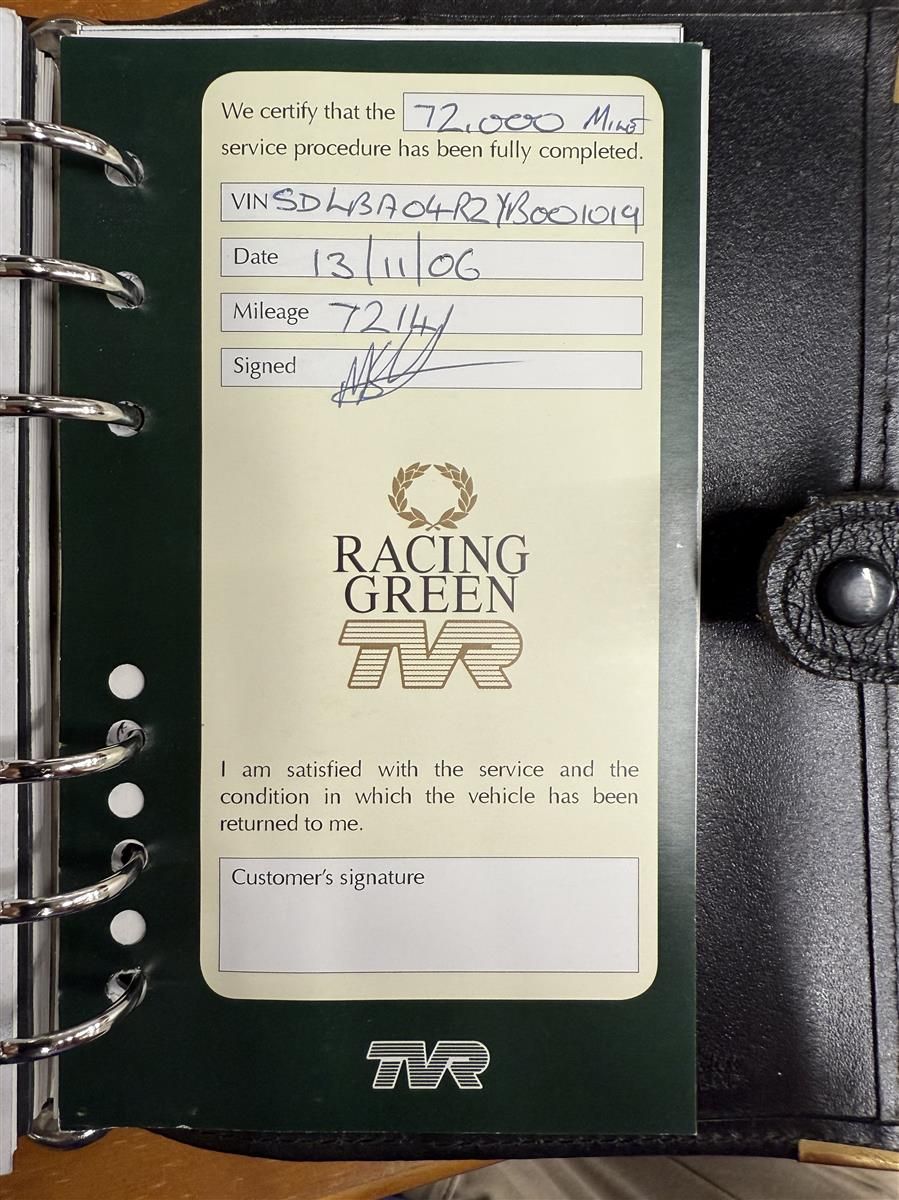 We certify that the 72,000 Miles
service procedure has been fully completed.
VIN SDLBA04R2YB001019
Date 13/11/06
Mileage 72141
Signed
RACING
GREEN
TVR
I am satisfied with the service and the
condition in which the vehicle has been
returned to me.
Customer's signature
TVR